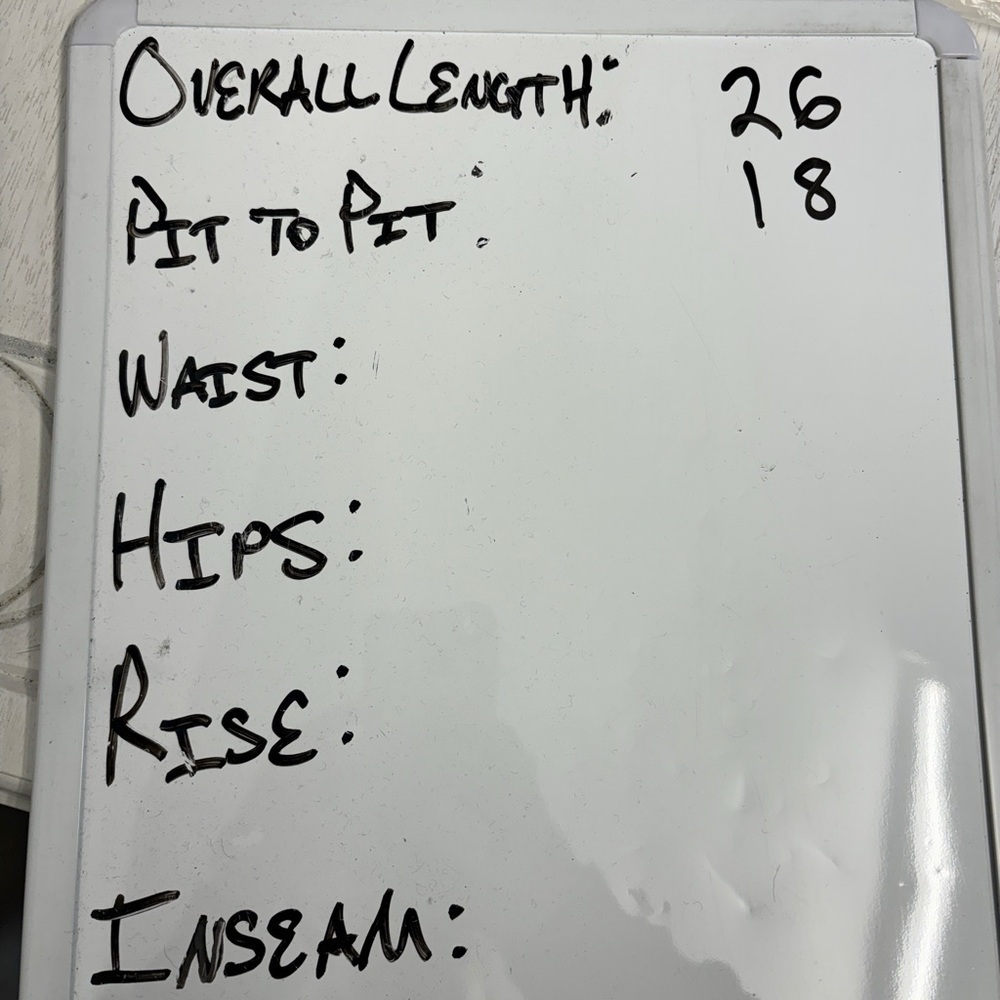 OVERALL LENGTH: 26
PIT TO PIT: 18
WAIST:
HIPS:
RISE:
INSEAM: